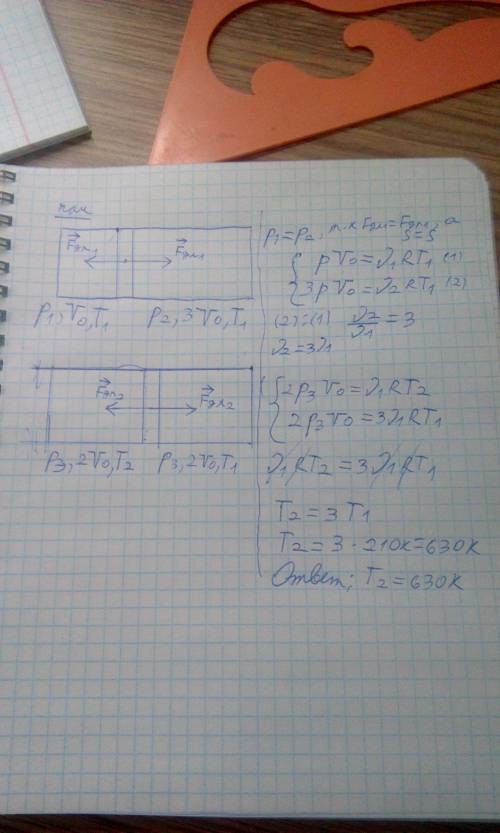 нач
F⃗дл₁ F⃗дл₁
p₁, V₀, T₁ p₂, 3V₀, T₁
F⃗дл₂ F⃗дл₂
p₃, 2V₀, T₂ p₃, 2V₀, T₁
p₁ = p₂, т.к Fдл₁ = Fдл₁, а
S = S
{ pV₀ = ν₁RT₁ (1)
3pV₀ = ν₂RT₁ (2)
(2):(1) ν₂/ν₁ = 3
ν₂ = 3ν₁
{ 2p₃V₀ = ν₁RT₂
2p₃V₀ = 3ν₁RT₁
ν₁RT₂ = 3ν₁RT₁
T₂ = 3T₁
T₂ = 3 · 210К = 630К
Ответ: T₂ = 630К